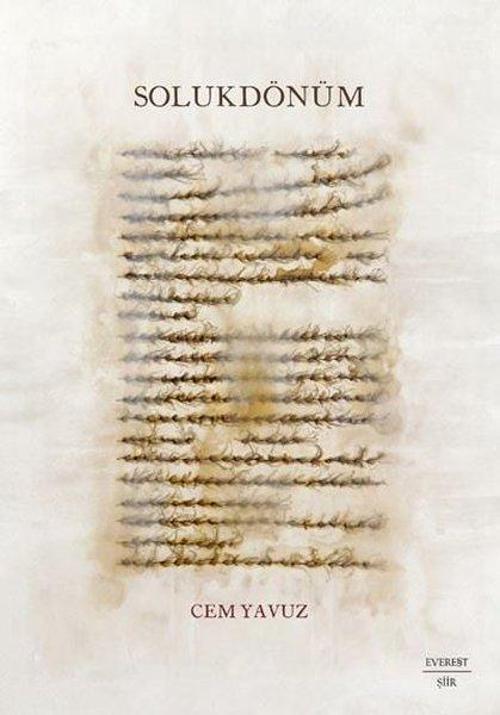 SOLUKDÖNÜM
CEM YAVUZ
EVEREST
ŞİİR